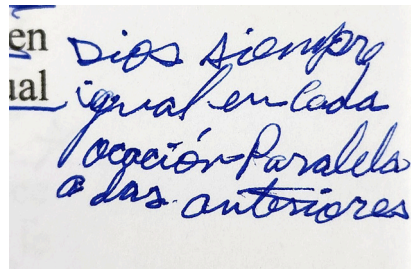 en
ual
Dios siempre
igual en cada
ocación-Paralela
a das anteriores